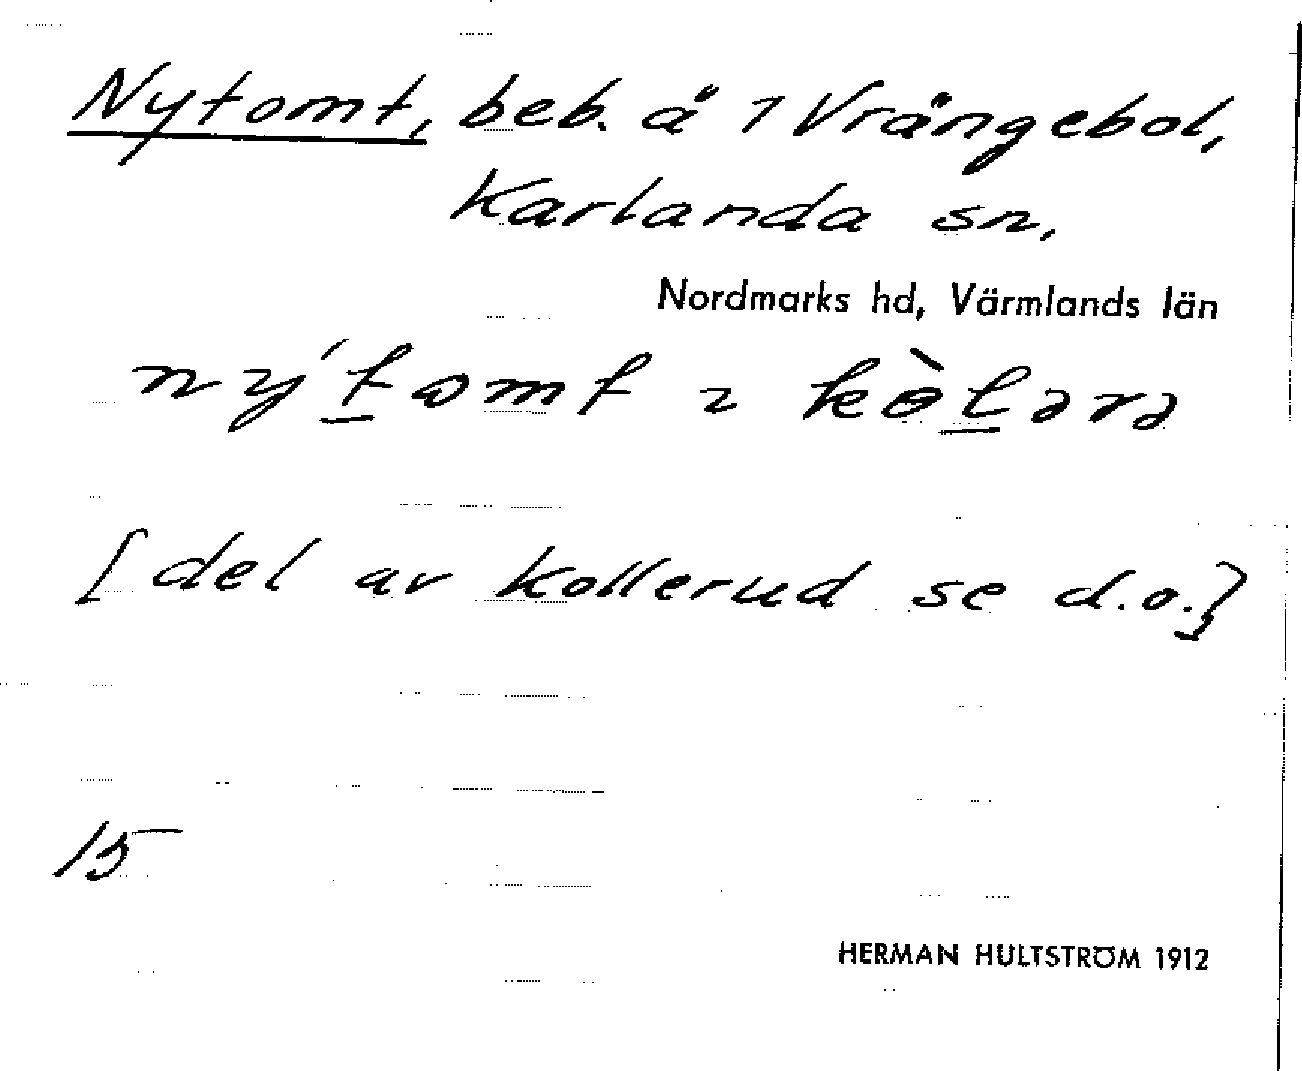 Nytomt, beb. å 1 Vrångebol,
Karlanda sn,
Nordmarks hd, Värmlands län
ný't̲omt
[del av Kollerud se d.o.]
15
HERMAN HULTSTRÖM 1912